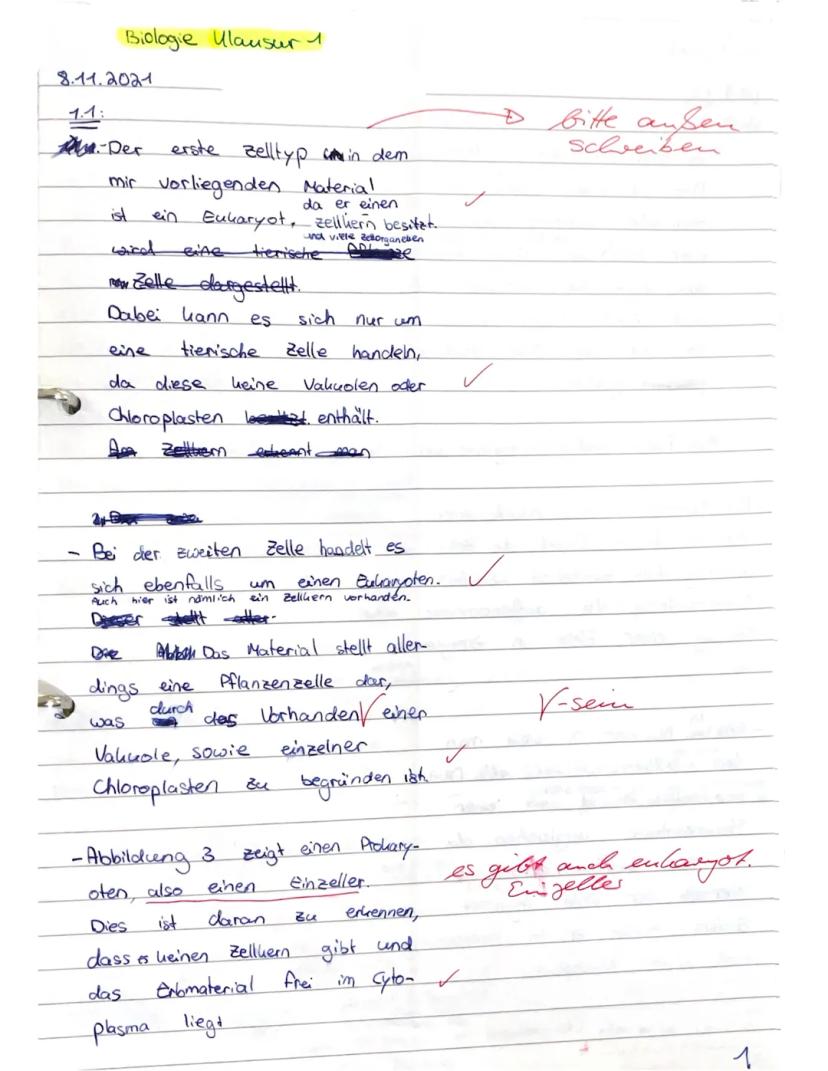 Biologie Klausur 1
8.11.2021
1.1:
bitte außen
schreiben
- Der erste Zelltyp in dem
mir vorliegenden Material
da er einen
ist ein Eukaryot, Zellkern besitzt.
und viele Zellorganellen
wird eine tierische
Zelle dargestellt.
Dabei kann es sich nur um
eine tierische Zelle handeln,
da diese keine Vakuolen oder
Chloroplasten besitzt. enthält.
Am Zellkern erkennt man
- Bei der zweiten Zelle handelt es
sich ebenfalls um einen Eukaryoten.
Auch hier ist nämlich ein Zellkern vorhanden.
Dieser stellt aller-
Die Das Material stellt aller-
dings eine Pflanzenzelle dar,
was durch das Vorhanden einer
V-sein
Vakuole, sowie einzelner
Chloroplasten zu begründen ist.
- Abbildung 3 zeigt einen Prokary-
oten, also einen Einzeller.
es gibt auch eukaryot.
Einzeller
Dies ist daran zu erkennen,
dass es keinen Zellkern gibt und
das Erbmaterial frei im Cyto-
plasma liegt
1